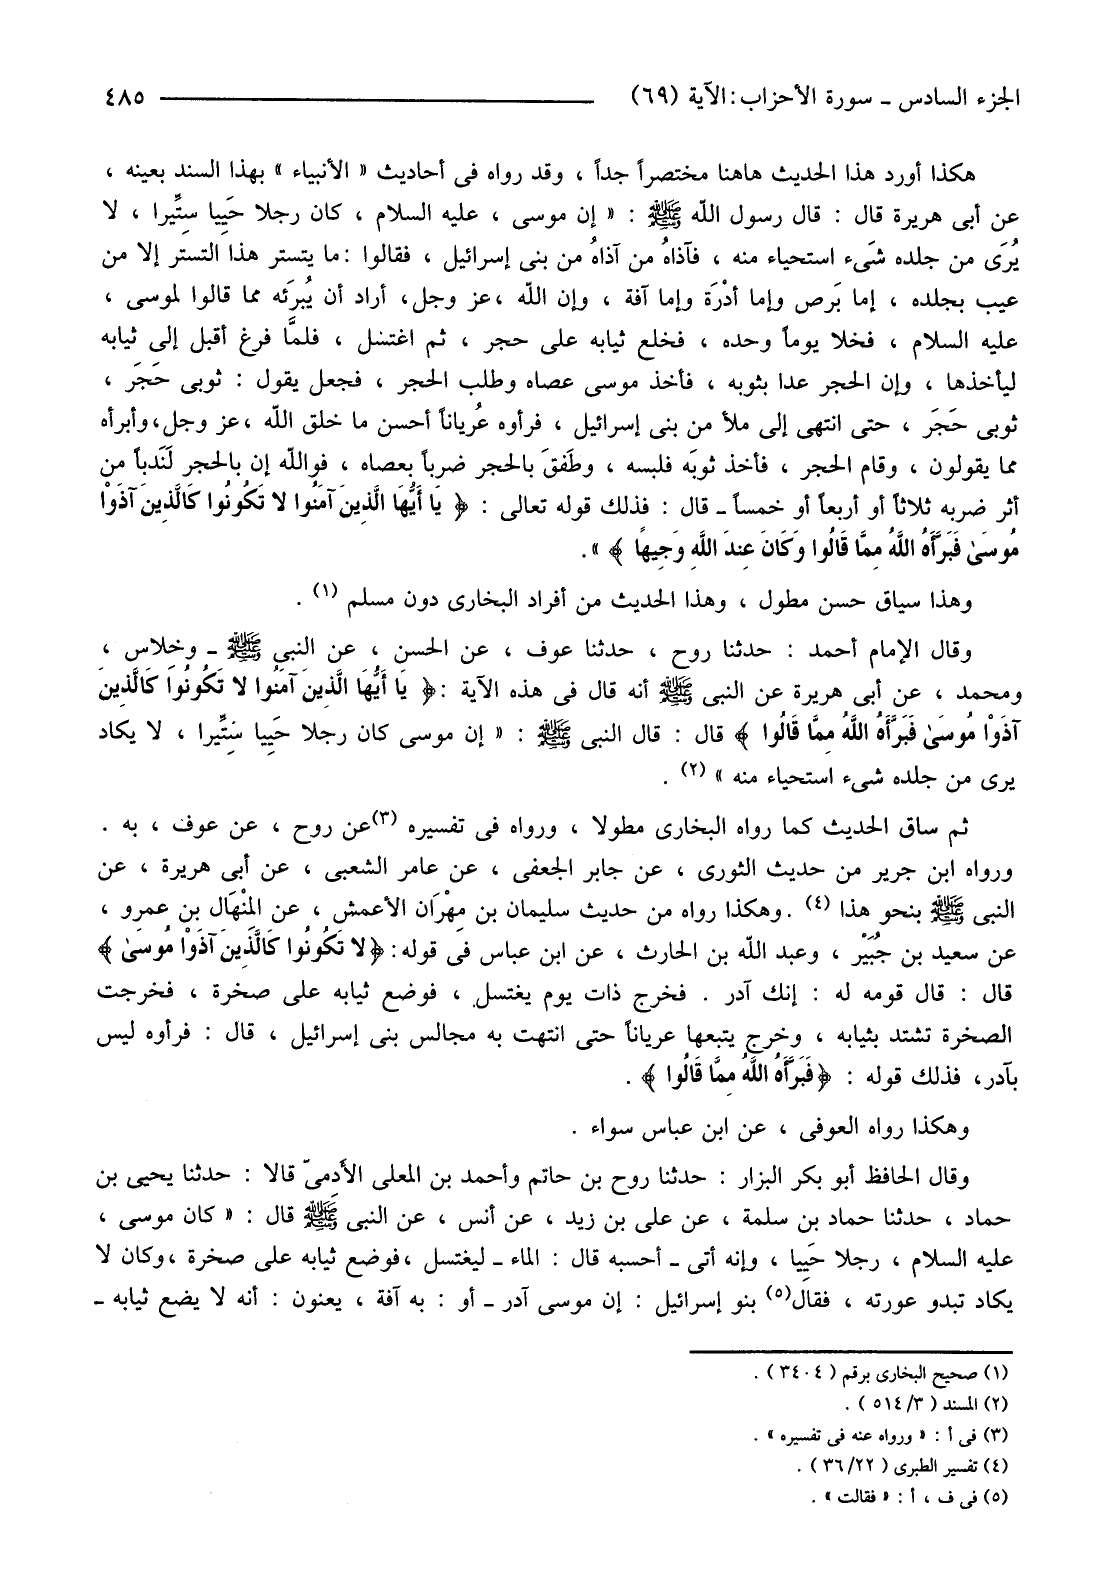 الجزء السادس ـ سورة الأحزاب: الآية (٦٩) ٤٨٥
هكذا أورد هذا الحديث هاهنا مختصراً جداً ، وقد رواه فى أحاديث « الأنبياء » بهذا السند بعينه ،
عن أبى هريرة قال : قال رسول الله ﷺ : « إن موسى ، عليه السلام ، كان رجلا حَيِيا سِتِّيرا ، لا
يُرَى من جلده شَىء استحياء منه ، فآذاهُ من آذاهُ من بنى إسرائيل ، فقالوا :ما يتستر هذا التستر إلا من
عيب بجلده ، إما بَرص وإما أدْرَة وإما آفة ، وإن الله ،عز وجل، أراد أن يُبرَئه مما قالوا لموسى ،
عليه السلام ، فخلا يوماً وحده ، فخلع ثيابه على حجر ، ثم اغتسل ، فلمَّا فرغ أقبل إلى ثيابه
ليأخذها ، وإن الحجر عدا بثوبه ، فأخذ موسى عصاه وطلب الحجر ، فجعل يقول : ثوبى حَجَر ،
ثوبى حَجَر ، حتى انتهى إلى ملأ من بنى إسرائيل ، فرأوه عُرياناً أحسن ما خلق الله ،عز وجل،وأبرأه
مما يقولون ، وقام الحجر ، فأخذ ثوبَه فلبسه ، وطَفقَ بالحجر ضرباً بعصاه ، فوالله إن بالحجر لَنَدباً من
أثر ضربه ثلاثاً أو أربعاً أو خمساً ـ قال : فذلك قوله تعالى : ﴿ يَا أَيُّهَا الَّذِينَ آمَنُوا لا تَكُونُوا كَالَّذِينَ آذَوْا
مُوسَىٰ فَبَرَّأَهُ اللَّهُ مِمَّا قَالُوا وَكَانَ عِندَ اللَّهِ وَجِيهًا ﴾ ».
وهذا سياق حسن مطول ، وهذا الحديث من أفراد البخارى دون مسلم (١) .
وقال الإمام أحمد : حدثنا روح ، حدثنا عوف ، عن الحسن ، عن النبى ﷺ ـ وخلاس ،
ومحمد ، عن أبى هريرة عن النبى ﷺ أنه قال فى هذه الآية :﴿ يَا أَيُّهَا الَّذِينَ آمَنُوا لا تَكُونُوا كَالَّذِينَ
آذَوْا مُوسَىٰ فَبَرَّأَهُ اللَّهُ مِمَّا قَالُوا ﴾ قال : قال النبى ﷺ : « إن موسى كان رجلا حَيِيا سَتِّيرا ، لا يكاد
يرى من جلده شىء استحياء منه » (٢) .
ثم ساق الحديث كما رواه البخارى مطولا ، ورواه فى تفسيره (٣)عن روح ، عن عوف ، به .
ورواه ابن جرير من حديث الثورى ، عن جابر الجعفى ، عن عامر الشعبى ، عن أبى هريرة ، عن
النبى ﷺ بنحو هذا (٤) .وهكذا رواه من حديث سليمان بن مِهْرَان الأعمش ، عن المِنْهَال بن عمرو ،
عن سعيد بن جُبَيْر ، وعبد الله بن الحارث ، عن ابن عباس فى قوله: ﴿لا تَكُونُوا كَالَّذِينَ آذَوْا مُوسَىٰ ﴾
قال : قال قومه له : إنك آدر . فخرج ذات يوم يغتسل ، فوضع ثيابه على صخرة ، فخرجت
الصخرة تشتد بثيابه ، وخرج يتبعها عرياناً حتى انتهت به مجالس بنى إسرائيل ، قال : فرأوه ليس
بآدر، فذلك قوله : ﴿فَبَرَّأَهُ اللَّهُ مِمَّا قَالُوا ﴾ .
وهكذا رواه العوفى ، عن ابن عباس سواء .
وقال الحافظ أبو بكر البزار : حدثنا روح بن حاتم وأحمد بن المعلى الأَدَمىّ قالا : حدثنا يحيى بن
حماد ، حدثنا حماد بن سلمة ، عن على بن زيد ، عن أنس ، عن النبى ﷺ قال : « كان موسى ،
عليه السلام ، رجلا حَيِيا ، وإنه أتى ـ أحسبه قال : الماء ـ ليغتسل ،فوضع ثيابه على صخرة ،وكان لا
يكاد تبدو عورته ، فقال(٥) بنو إسرائيل : إن موسى آدر ـ أو : به آفة ، يعنون : أنه لا يضع ثيابه ـ
(١) صحيح البخارى برقم ( ٣٤٠٤ ) .
(٢) المسند ( ٥١٤/٣ ) .
(٣) فى أ : « ورواه عنه فى تفسيره » .
(٤) تفسير الطبرى ( ٣٦/٢٢ ) .
(٥) فى ف ، أ : « فقالت » .